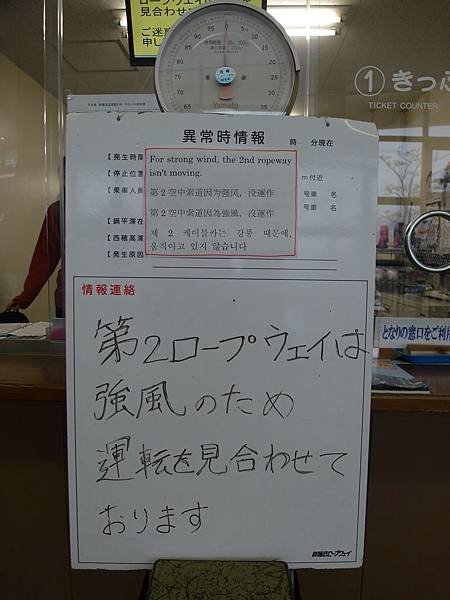 見合わせ
ご迷
申し
Yamato
① きっぷ
TICKET COUNTER
異常時情報
時 分現在
【発生時間
【停止位置
m付近
【乗車人員
号車 名
号車 名
【鍋平滞在
【西穂高滞
【発生原因
For strong wind, the 2nd ropeway
isn't moving.
第2空中索道因为强风，没运作
第2空中索道因為強風，沒運作
제 2 케이블카는 강풍 때문에,
움직이고 있지 않습니다
情報連絡
第2ロープウェイは
強風のため
運転を見合わせて
おります
新穂高ロープウェイ
となりの窓口をご利用